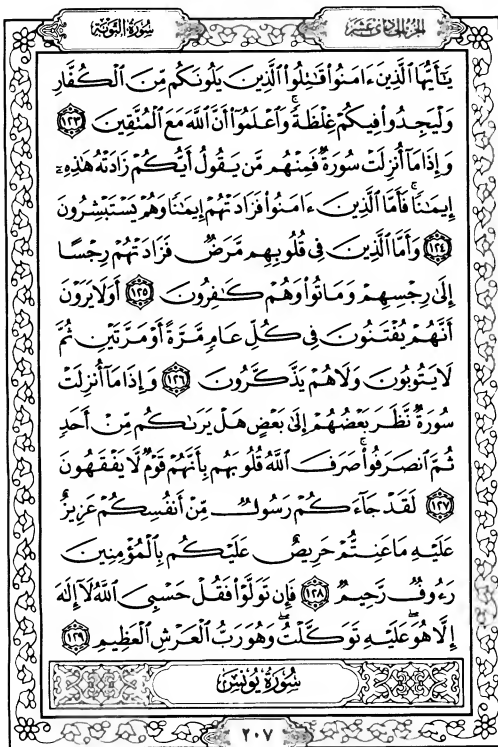 سُورَةُ التَّوْبَةِ
الجُزْءُ الحَادِى عَشَر
يَـٰٓأَيُّهَا ٱلَّذِينَ ءَامَنُوا۟ قَـٰتِلُوا۟ ٱلَّذِينَ يَلُونَكُم مِّنَ ٱلْكُفَّارِ
وَلْيَجِدُوا۟ فِيكُمْ غِلْظَةً ۚ وَٱعْلَمُوٓا۟ أَنَّ ٱللَّهَ مَعَ ٱلْمُتَّقِينَ ١٢٣
وَإِذَا مَآ أُنزِلَتْ سُورَةٌ فَمِنْهُم مَّن يَقُولُ أَيُّكُمْ زَادَتْهُ هَـٰذِهِۦٓ
إِيمَـٰنًا ۚ فَأَمَّا ٱلَّذِينَ ءَامَنُوا۟ فَزَادَتْهُمْ إِيمَـٰنًا وَهُمْ يَسْتَبْشِرُونَ
١٢٤ وَأَمَّا ٱلَّذِينَ فِى قُلُوبِهِم مَّرَضٌ فَزَادَتْهُمْ رِجْسًا
إِلَىٰ رِجْسِهِمْ وَمَاتُوا۟ وَهُمْ كَـٰفِرُونَ ١٢٥ أَوَلَا يَرَوْنَ
أَنَّهُمْ يُفْتَنُونَ فِى كُلِّ عَامٍ مَّرَّةً أَوْ مَرَّتَيْنِ ثُمَّ
لَا يَتُوبُونَ وَلَا هُمْ يَذَّكَّرُونَ ١٢٦ وَإِذَا مَآ أُنزِلَتْ
سُورَةٌ نَّظَرَ بَعْضُهُمْ إِلَىٰ بَعْضٍ هَلْ يَرَىٰكُم مِّنْ أَحَدٍ
ثُمَّ ٱنصَرَفُوا۟ ۚ صَرَفَ ٱللَّهُ قُلُوبَهُم بِأَنَّهُمْ قَوْمٌ لَّا يَفْقَهُونَ
١٢٧ لَقَدْ جَآءَكُمْ رَسُولٌ مِّنْ أَنفُسِكُمْ عَزِيزٌ
عَلَيْهِ مَا عَنِتُّمْ حَرِيصٌ عَلَيْكُم بِٱلْمُؤْمِنِينَ
رَءُوفٌ رَّحِيمٌ ١٢٨ فَإِن تَوَلَّوْا۟ فَقُلْ حَسْبِىَ ٱللَّهُ لَآ إِلَـٰهَ
إِلَّا هُوَ ۖ عَلَيْهِ تَوَكَّلْتُ ۖ وَهُوَ رَبُّ ٱلْعَرْشِ ٱلْعَظِيمِ ١٢٩
سُورَةُ يُونُسَ
٢٠٧